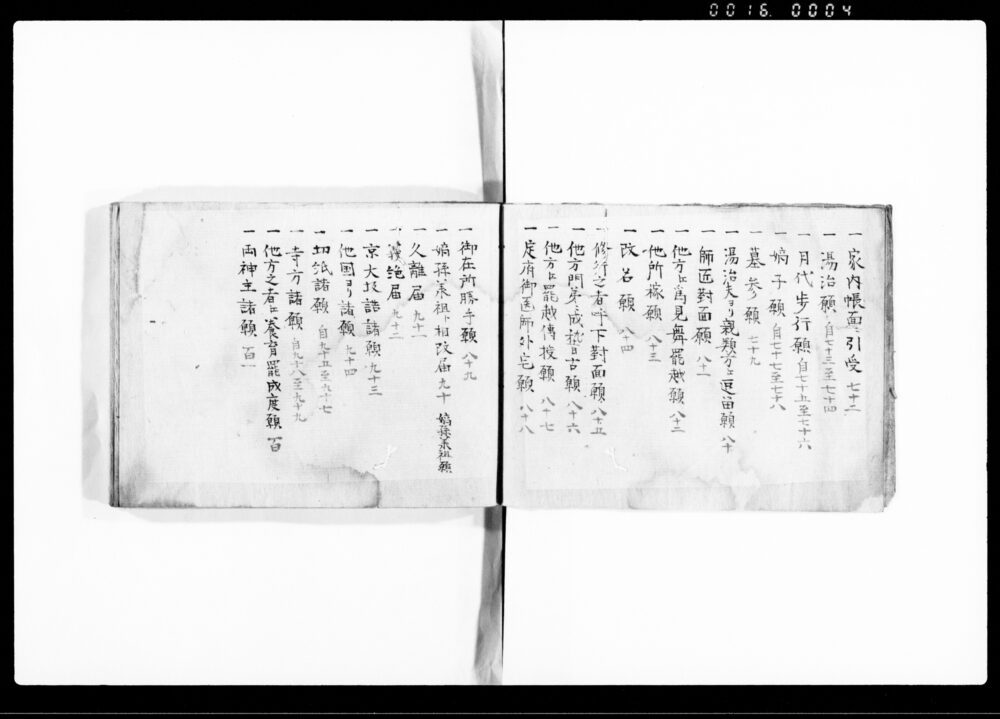 0016 0004
一 家内帳面ニ引受 七十二
一 湯治願 自七十三至七十四
一 月代歩行願 自七十五至七十六
一 嫡子願 自七十七至七十八
一 墓参願 七十九
一 湯治夫ヨリ親類方江逗留願 八十
一 師匠對面願 八十一
一 他方江為見舞罷越願 八十二
一 他所稼願 八十三
一 改名願 八十四
一 修行之者呼下對面願 八十五
一 他方門弟ニ成稽古願 八十六
一 他方江罷越傳授願 八十七
一 定府御医師外宅願 八十八
一 御在所勝手願 八十九
一 嫡孫承祖ト相改届 九十 嫡孫承祖願
一 久離届 九十一
一 義絶届 九十二
一 京大坂詰諸願 九十三
一 他国ヨリ諸願 九十四
一 切紙諸願 自九十五至九十七
一 寺方諸願 自九十八至九十九
一 他方之者江養育罷成度願 百
一 両神主諸願 百一